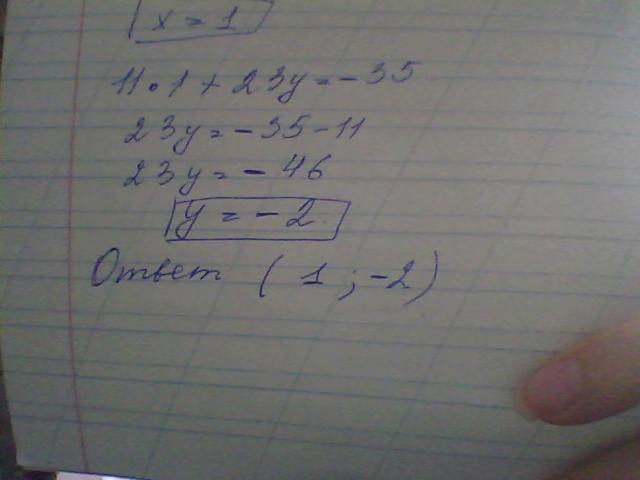 x = 1
11 • 1 + 23y = - 35
23y = - 35 - 11
23y = - 46
y = - 2
Ответ ( 1 ; -2 )